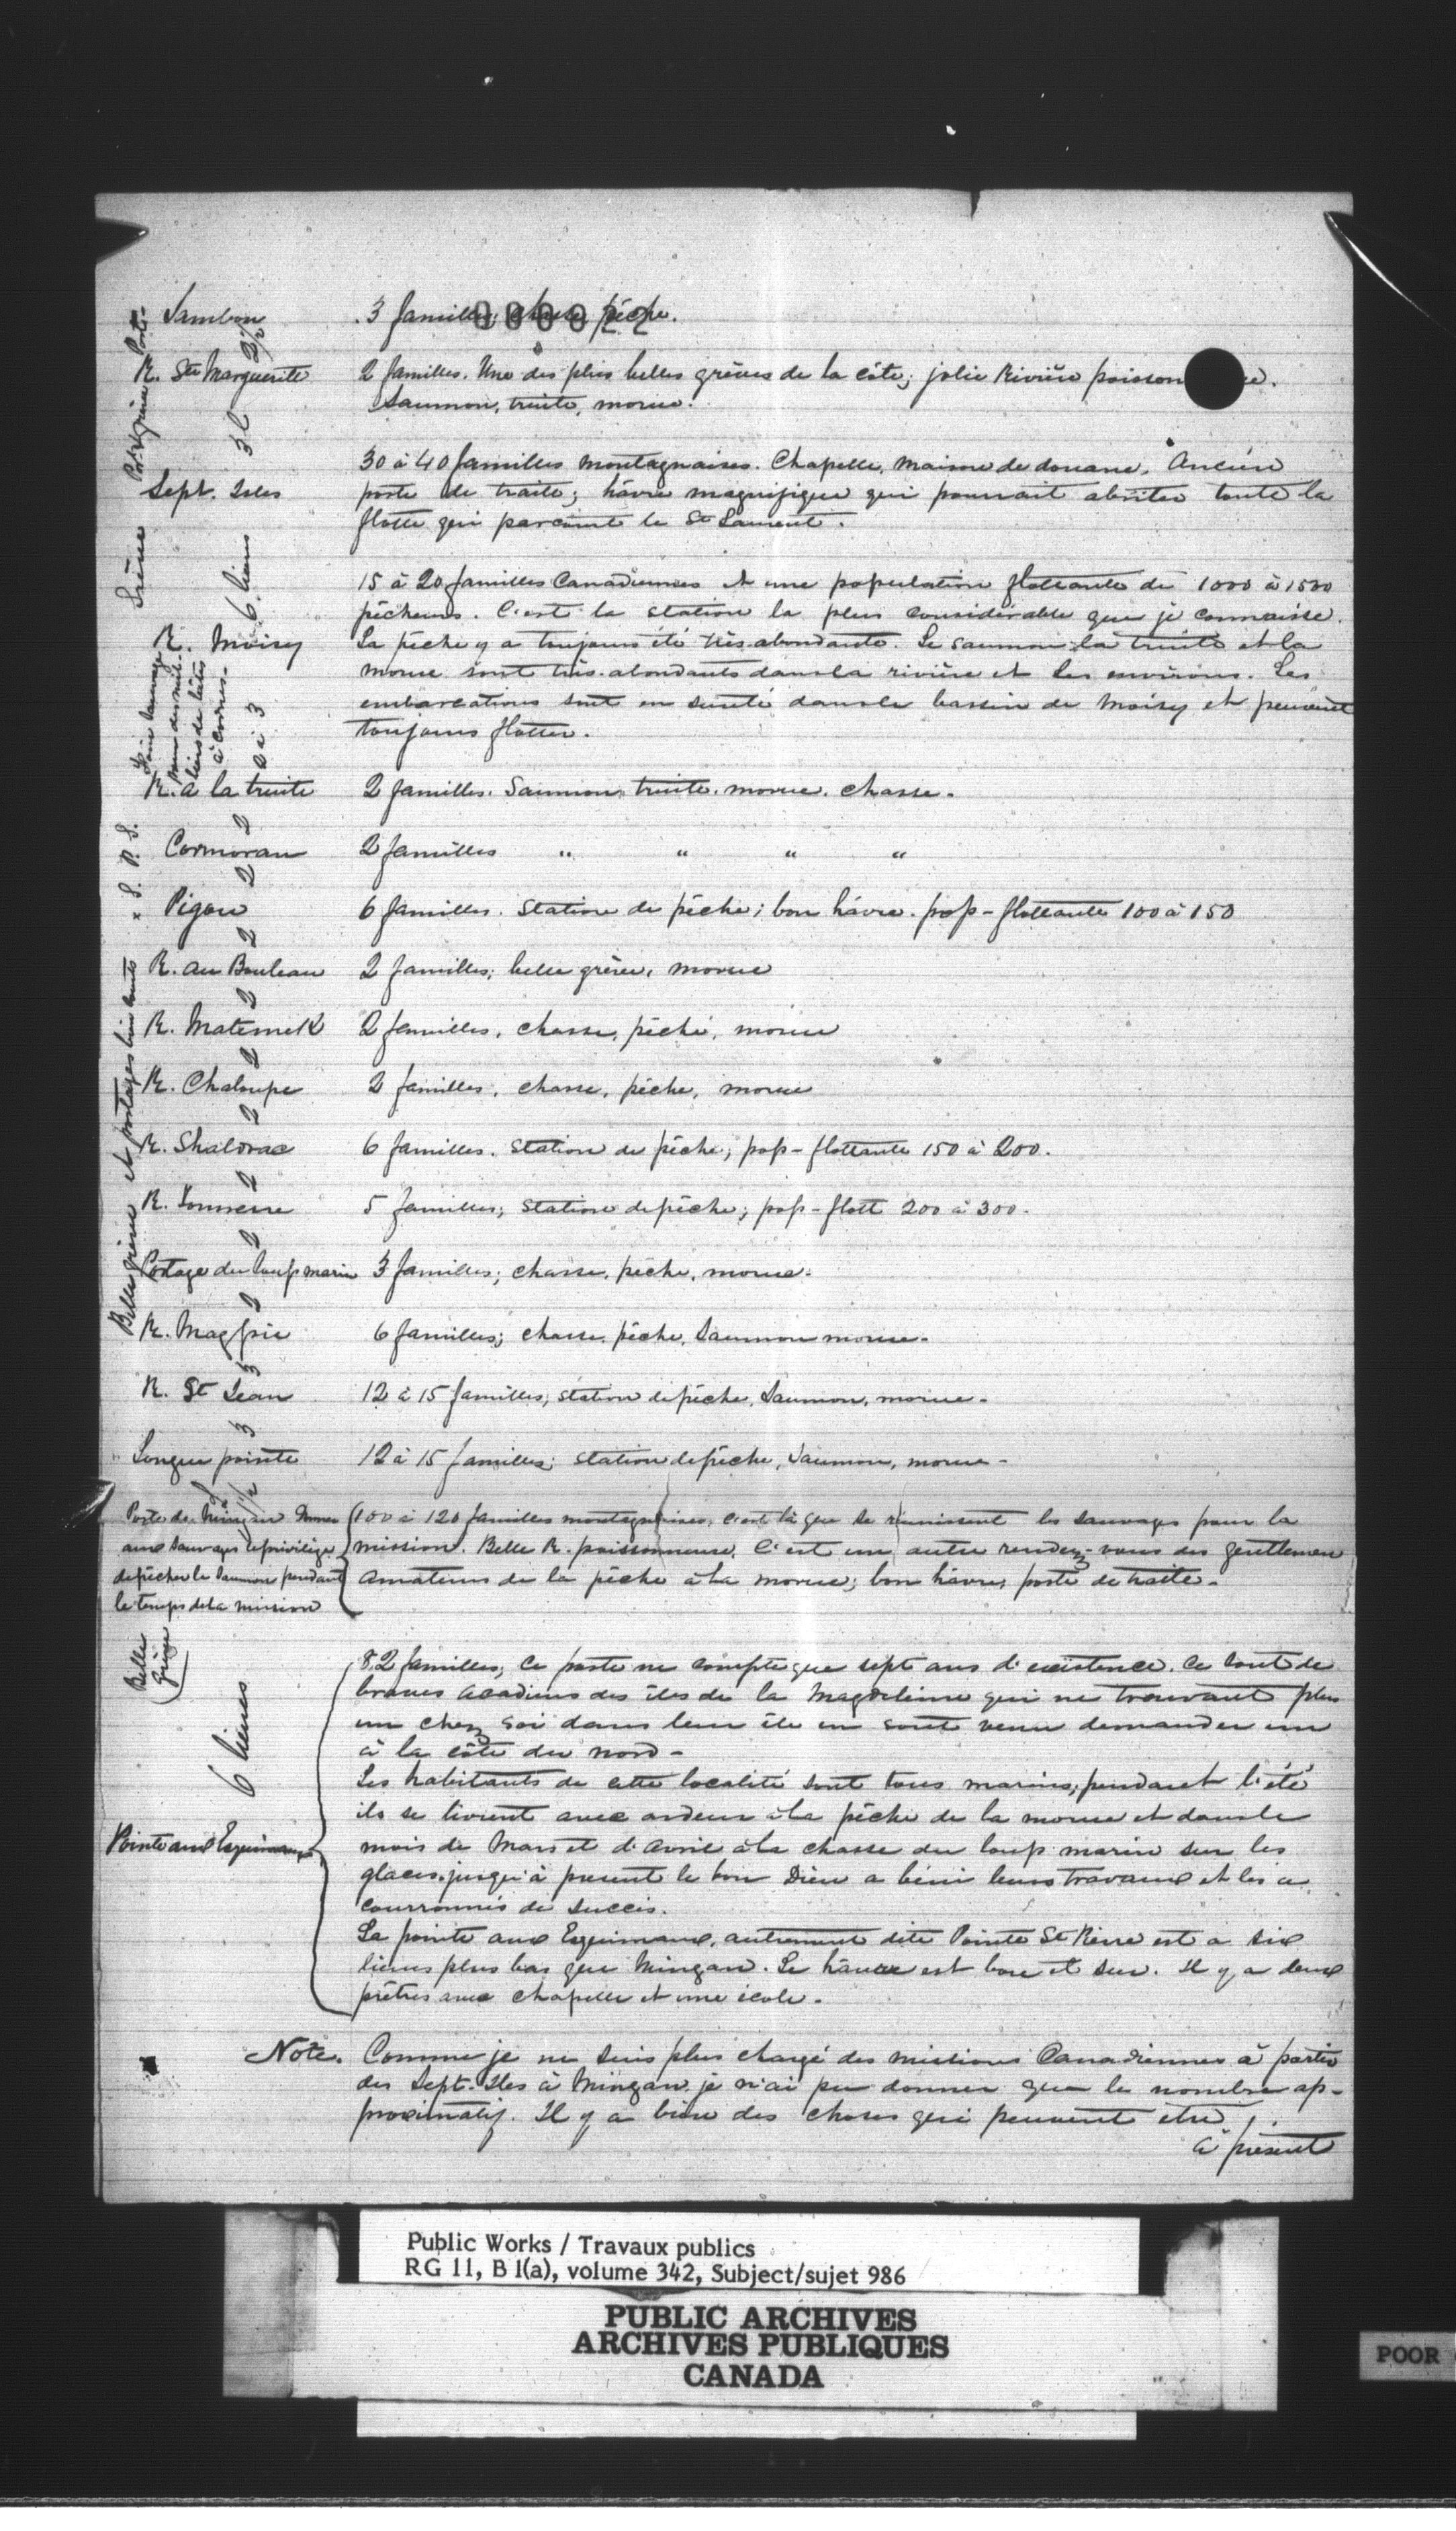 Jambon 3 familles; chasse, pêche.
000022
2½
R. Ste Marguerite 2 familles. Une des plus belles grèves de la côte; jolie Rivière poisson
Saumon, truite, morue.
3 l
30 à 40 familles montagnaises. Chapelle, maison de douane. Ancien
Sept. Isles poste de traite; hâvre magnifique qui pourrait abriter toute la
flotte qui parcourt le St Laurent.
6 lieues
15 à 20 familles Canadiennes et une population flottante de 1000 à 1500
pêcheurs. C'est la station la plus considérable que je connaisse.
R. Moisy La pêche y a toujours été très-abondante. Le saumon la truite et la
morue sont très-abondants dans la rivière et les environs. Les
embarcations sont en sureté dans le bassin de Moisy et peuvent
toujours flotter.
2 à 3
R. à la truite 2 familles. Saumon, truite, morue, chasse.
2
Cormoran 2 familles " " " "
2
Pigou 6 familles. Station de pêche; bon hâvre. pop-flottante 100 à 150
2
R. au Bouleau 2 familles; belle grève, morue
2
R. Matemek 2 familles, chasse, pêche, morue
2
R. Chaloupe 2 familles, chasse, pêche, morue
2
R. Shaldrac 6 familles. Station de pêche; pop-flottante 150 à 200.
2
R. Tonnerre 5 familles; Station de pêche; pop-flott 200 à 300.
2
Portage du loup marin 3 familles; chasse, pêche, morue.
2
R. Magpie 6 familles; chasse, pêche, Saumon morue.
3
R. St Jean 12 à 15 familles; station de pêche, Saumon, morue.
3
Longue pointe 12 à 15 familles; station de pêche, Saumon, morue.
Belle grève et portages
Poste de Mingan Donner 100 à 120 familles montagnaises, c'est là que se réunissent les sauvages pour la
aux Sauvages le privilège mission. Belle R. poissonneuse. C'est un autre rendez-vous des gentlemen
de pêcher le Saumon pendant amateurs de la pêche à la morue; bon hâvre, poste de traite.
le temps de la mission
Belle
Grève
6 lieues
82 familles; ce poste ne compte que sept ans d'existence. Ce sont de
braves Acadiens des îles de la Magdeleine qui ne trouvant plus
un chez soi dans leur île en sont venu demander un
à la côte du nord.
Les habitants de cette localité sont tous marins; pendant l'été
ils se livrent avec ardeur à la pêche de la morue et dans le
Pointe aux Esquimaux mois de Mars et d'Avril à la chasse du loup marin sur les
glaces. jusqu'à present le bon Dieu a béni leurs travaux et les a
couronnés de succès.
La pointe aux Esquimaux, autrement dite Pointe St Pierre est à six
lieues plus bas que Mingan. Le hâvre est bon et sur. Il y a deux
prêtres avec chapelle et une école.
Note. Comme je ne suis plus chargé des missions Canadiennes à partir
des Sept-Iles à Mingan je n'ai pu donner que le nombre ap-
proximatif. Il y a bien des choses qui peuvent être
à présent
Public Works / Travaux publics
RG 11, B 1(a), volume 342, Subject/sujet 986
PUBLIC ARCHIVES
ARCHIVES PUBLIQUES
CANADA
POOR